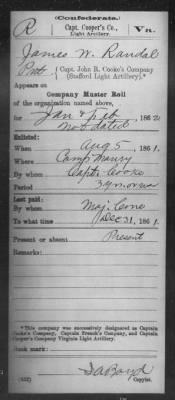 (Confederate.)
R Capt. Cooper's Co., Va.
Light Artillery.
James W. Randal
Pvt., Capt. John R. Cooke's Company
(Stafford Light Artillery).*
Appears on
Company Muster Roll
of the organization named above,
for Jan & Feb, 1862.
Not dated
Enlisted:
When Aug 5, 1861.
Where Camp Maury
By whom Capt. Cooke
Period 3 yrs or war
Last paid:
By whom Maj. Cone
To what time Dec 31, 1861.
Present or absent Present
Remarks:
*This company was successively designated as Captain
Cooke's Company, Captain French's Company, and Captain
Cooper's Company Virginia Light Artillery.
Book mark:
(652) Copyist.